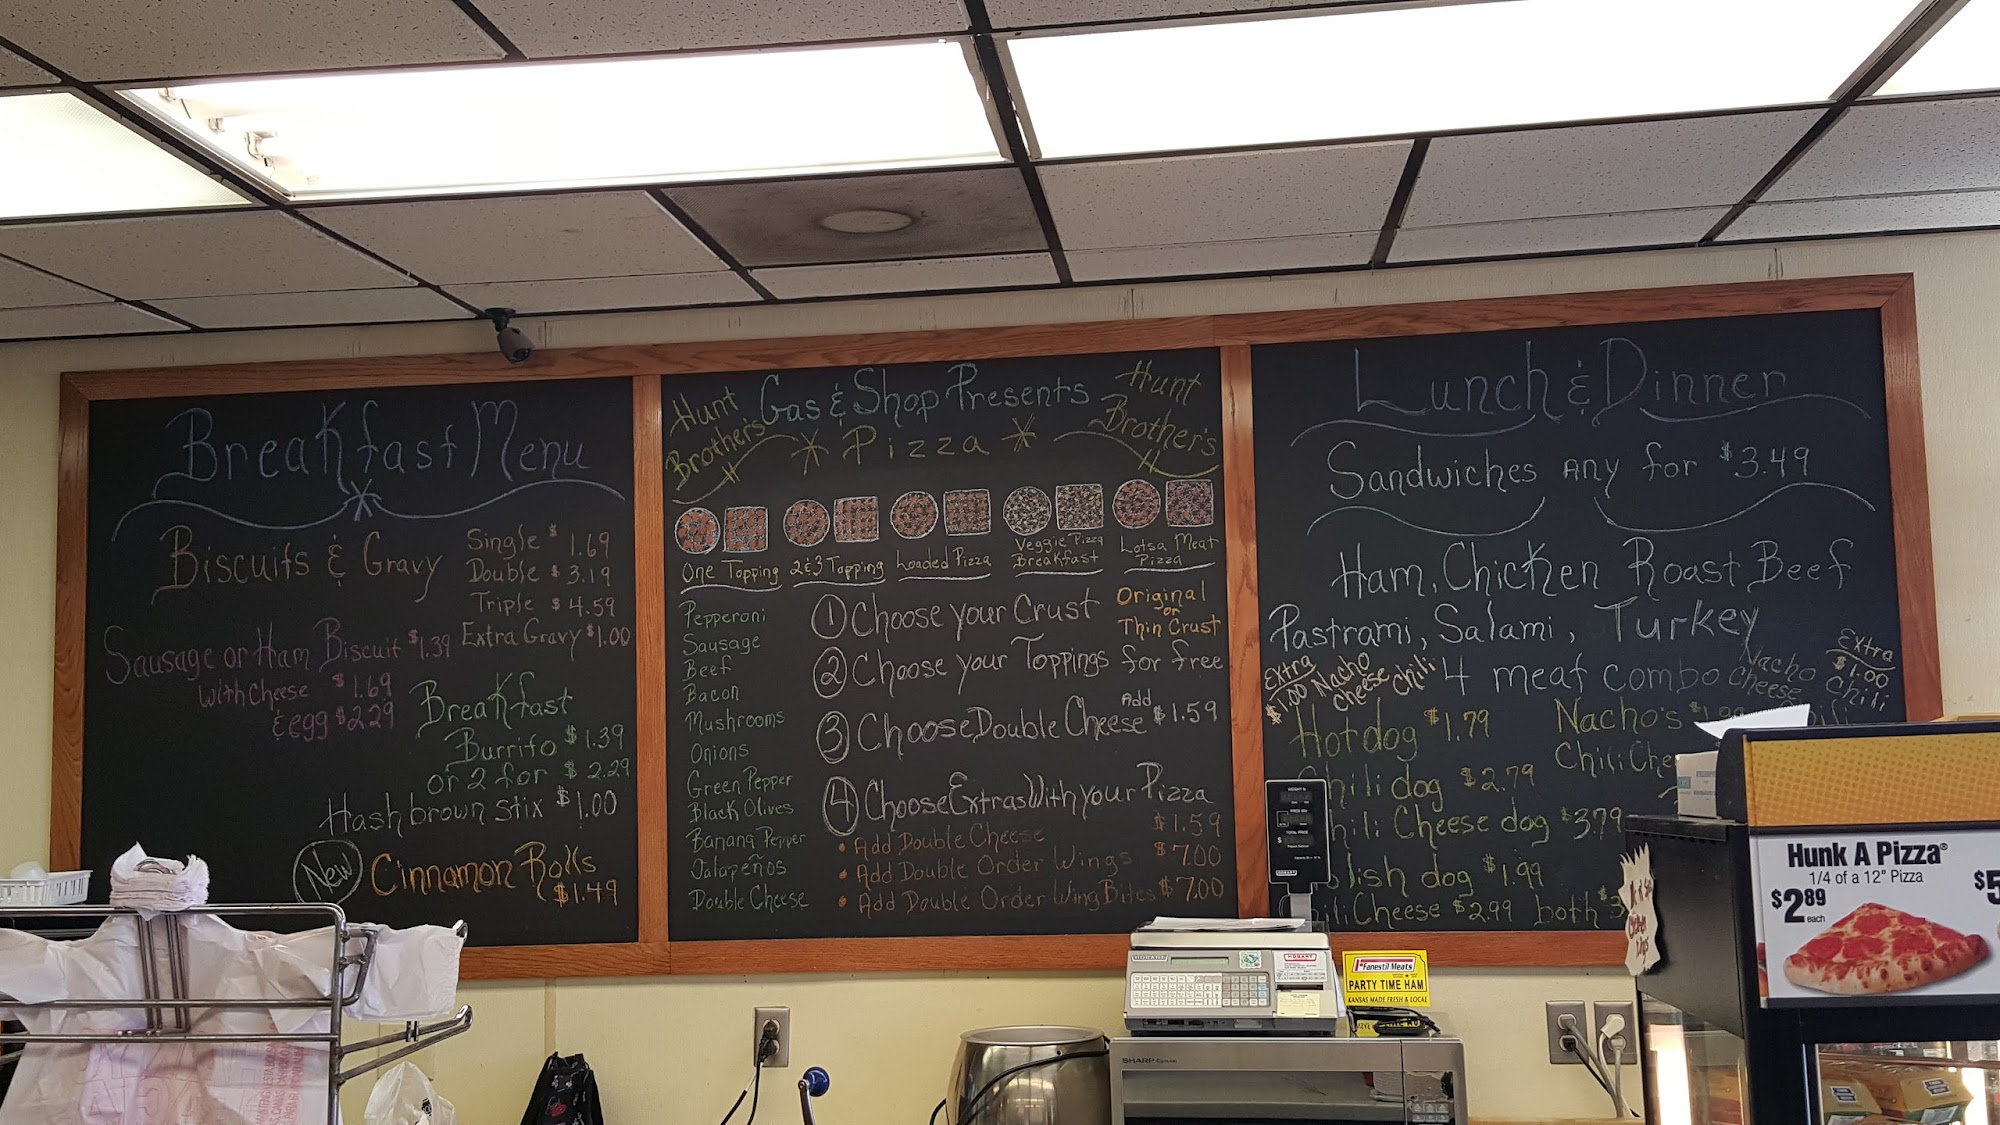 Breakfast Menu
Biscuits & Gravy
Single $1.69
Double $3.19
Triple $4.59
Extra Gravy $1.00
Sausage or Ham Biscuit $1.39
with cheese $1.69
& egg $2.29
Breakfast
Burrito $1.39
or 2 for $2.29
Hash brown stix $1.00
New Cinnamon Rolls
$1.49
Hunt
Brother's
Gas & Shop Presents
Pizza
Hunt
Brother's
One Topping
2&3 Topping
Loaded Pizza
Veggie Pizza
Breakfast
Lotsa Meat
Pizza
Pepperoni
Sausage
Beef
Bacon
Mushrooms
Onions
Green Pepper
Black Olives
Banana Pepper
Jalapeños
Double Cheese
1 Choose your Crust
Original
or
Thin Crust
2 Choose your Toppings for free
3 Choose Double Cheese Add $1.59
4 Choose Extras With your Pizza
Add Double Cheese $1.59
Add Double Order Wings $7.00
Add Double Order Wing Bites $7.00
Lunch & Dinner
Sandwiches Any for $3.49
Ham, Chicken Roast Beef
Pastrami, Salami, Turkey
4 meat combo
Extra
$1.00 Nacho
Cheese
Chili
Nacho
Cheese
Extra
$1.00
Chili
Hotdog $1.79
Chili dog $2.79
Chili Cheese dog $3.79
Polish dog $1.99
Chili Cheese $2.99 both $3
Nacho's
Chili Che
Hunk A Pizza®
1/4 of a 12" Pizza
$2.89
each
$5
HOBART
Fanestil Meats
PARTY TIME HAM
KANSAS MADE FRESH & LOCAL
SHARP